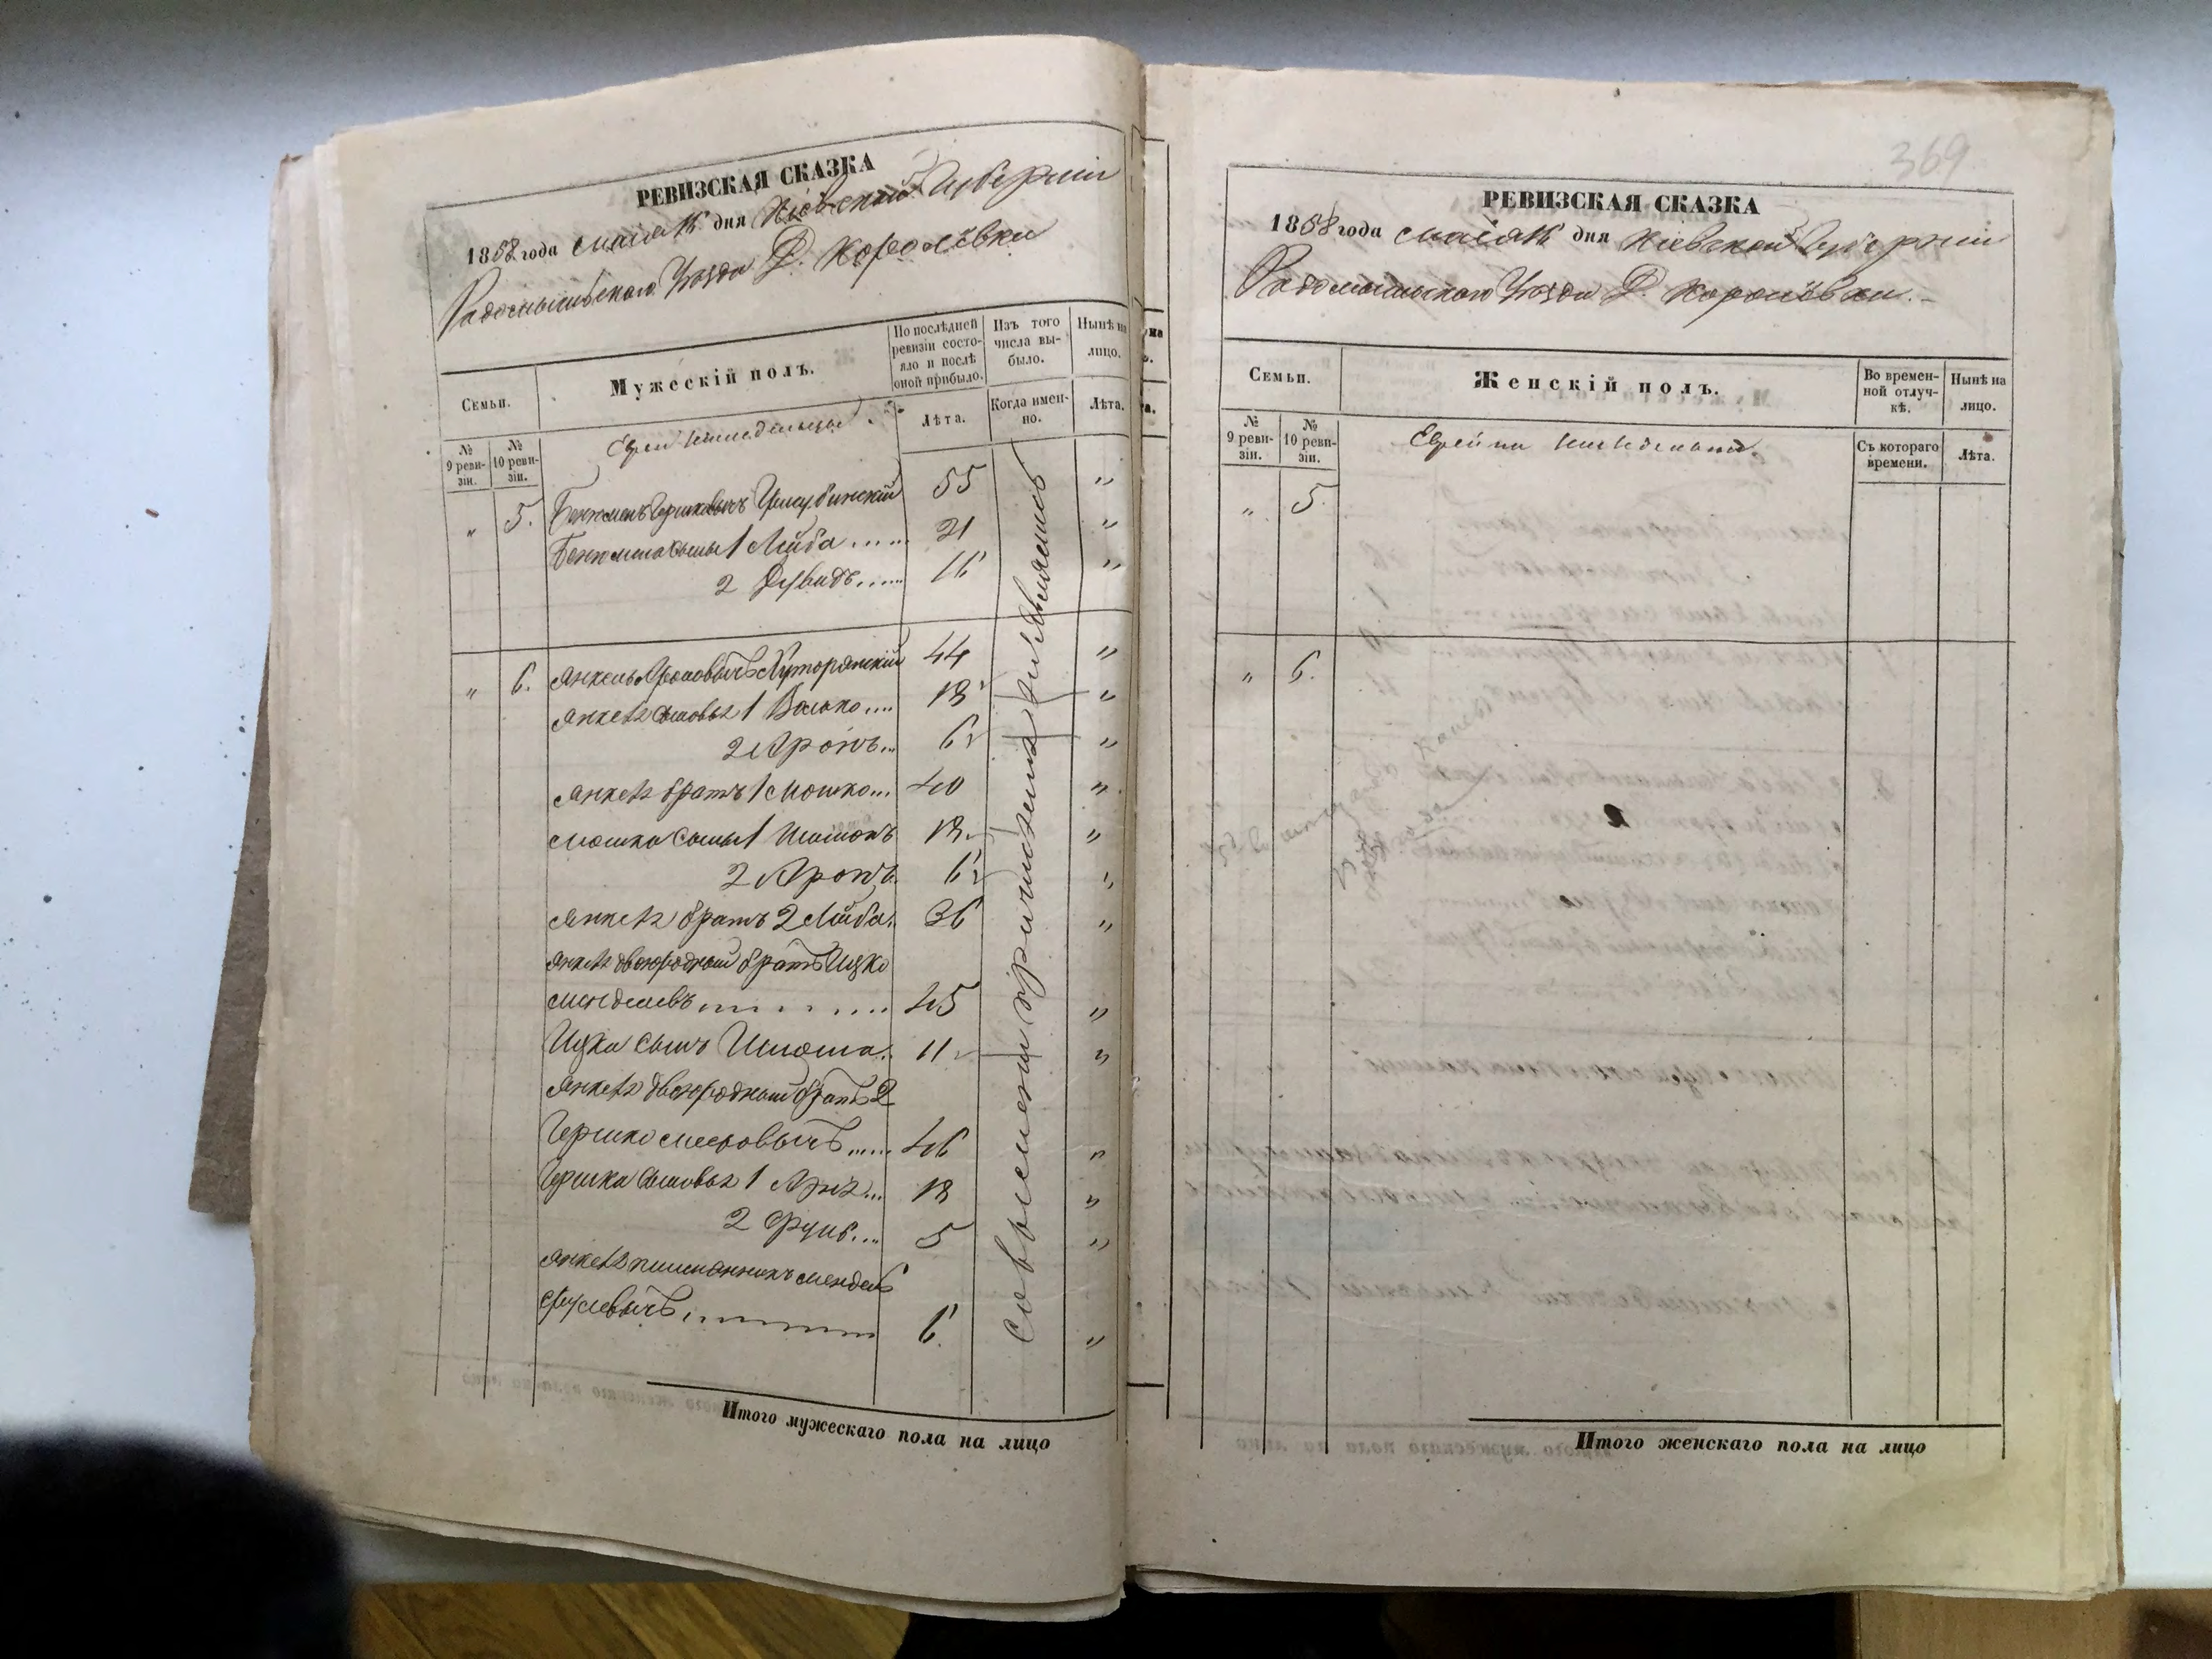 РЕВИЗСКАЯ СКАЗКА
1858 года маія дня Кіевской Губерніи
Радомысльскаго Уѣзда Д. Королёвки
Семьи.
Мужескій полъ.
По послѣдней ревизіи состояло и послѣ оной прибыло.
Изъ того числа выбыло.
Нынѣ на лицо.
Лѣта.
Когда именно.
Лѣта.
№ 9 ревизіи.
№ 10 ревизіи.
Евреи
" 5. Гершковичъ 55 "
сыны 1 Лейба ..... 21 "
2 Дувидъ ..... 16 "
" 6. Янкель Ароновичъ Хуторянскій 44 "
Янкеля сыновья 1 Волько .... 18 "
2 Аронъ... 6 "
Янкеля братъ 1 Мошко... 40 "
Мошка сыны 1 18 "
2 Аронъ. 6 "
Янкеля братъ 2 Лейба. 36 "
Янкеля двоюродный братъ Ицко
Менделевъ ........ 45 "
Ицка сынъ 11 "
Янкеля двоюродный братъ 2
Гершко ..... 46 "
Гершка сыновья 1 18 "
2 Сруль... 5 "
Янкеля племянникъ Мендель
Срулевичъ ........ 6. "
Итого мужескаго пола на лицо
369
РЕВИЗСКАЯ СКАЗКА
1858 года маія дня Кіевской Губерніи
Радомысльскаго Уѣзда Д. Королёвки.
Семьи.
Женскій полъ.
Во временной отлучкѣ.
Нынѣ на лицо.
№ 9 ревизіи.
№ 10 ревизіи.
Съ котораго времени.
Лѣта.
" 5.
" 6.
Итого женскаго пола на лицо